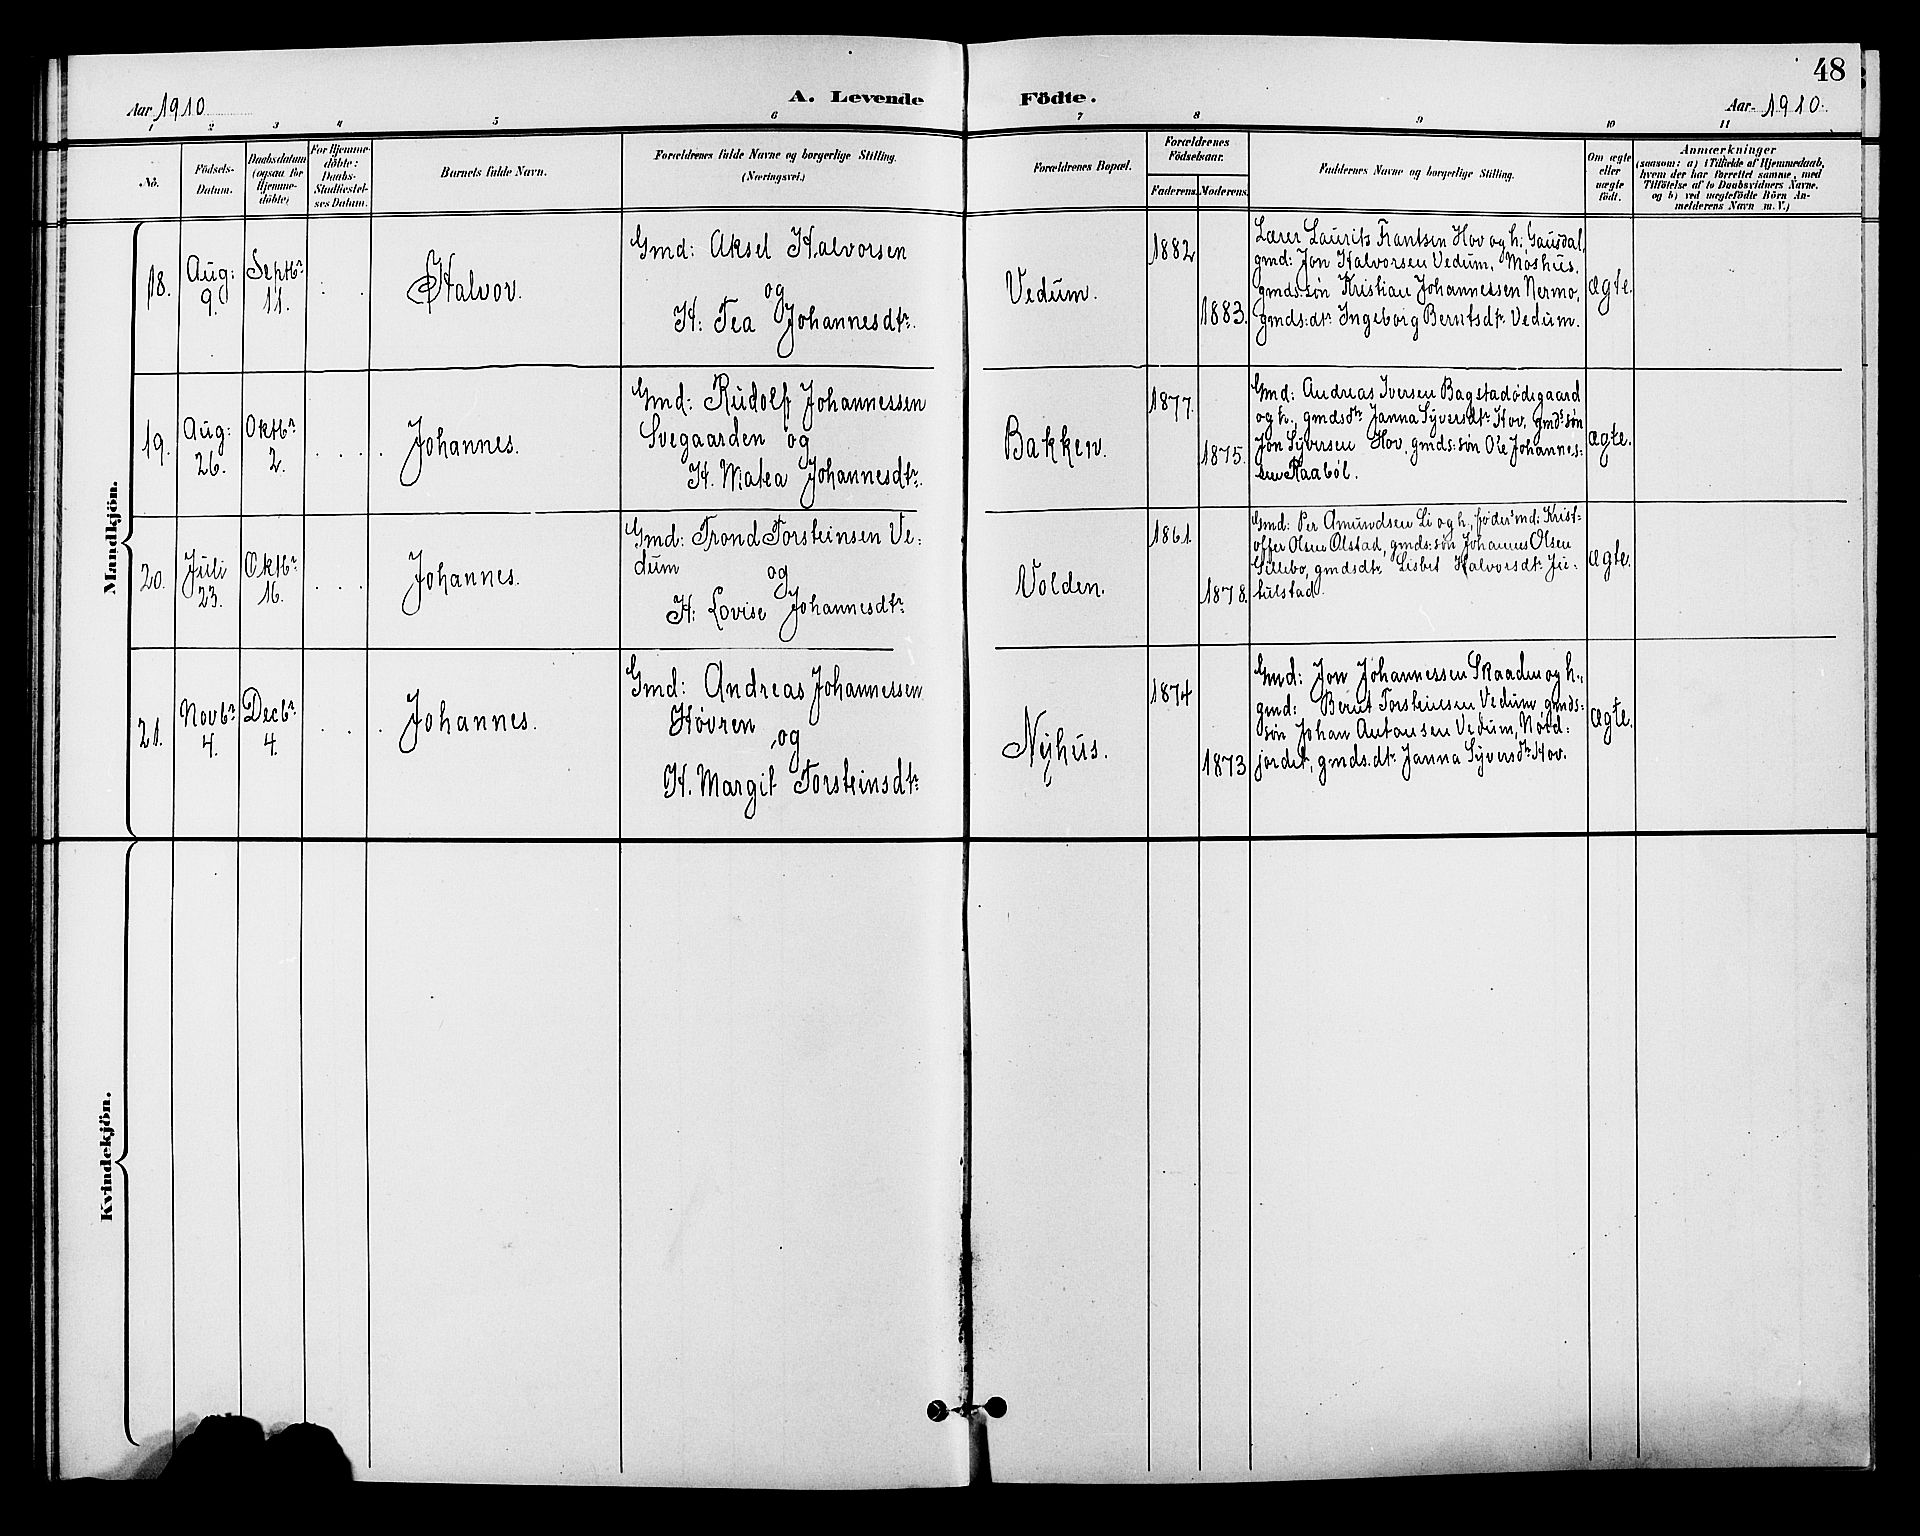 48
Aar 1910
A. Levende
Födte.
Aar 1910.
1 2 3 4 5 6 7 8 9 10 11
No.
Födsels-
Datum.
Daabsdatum
(ogsaa for
Hjemme-
döbte)
For Hjemme-
döbte:
Daabs-
Stadfæstel-
ses Datum.
Barnets fulde Navn.
Forældrenes fulde Navne og borgerlige Stilling.
(Næringsvei.)
Forældrenes Bopæl.
Forældrenes
Födselsaar.
Faderens. Moderens.
Faddernes Navne og borgerlige Stilling.
Om ægte
eller
uægte
født.
Anmærkninger
(saasom: a) i Tilfælde af Hjemmedaab,
hvem der har forrettet samme, med
Tilföielse af to Daabsvidners Navne.
og b) ved uægtefödte Börn An-
melderens Navn m. V.)
Mandkjön.
18.
Aug:
9.
Septbr
11.
Halvor.
Gmd: Aksel Halvorsen
og
H: Tea Johannesdtr.
Vedum.
1882
1883.
Lærer Laurits Frantsen Hov og h: Gausdal,
gmd: Jon Halvorsen Vedum, Moshus.
gmds:søn Kristian Johannessen Nermo,
gmds:dtr Ingeborg Berntsdtr Vedum.
ægte.
19.
Aug:
26.
Oktbr
2.
Johannes.
Gmd: Rudolf Johannessen
Svegaarden og
H. Matea Johannesdtr.
Bakken.
1877.
1875.
Gmd: Andreas Iversen Bagstadødegaard
og h., gmdsdtr Janna Syversdtr Hov, gmds søn
Jon Syversen Hov, gmds:søn Ole Johannes-
sen Raabøl.
ægte.
20.
Juli
23.
Oktbr
16.
Johannes.
Gmd: Trond Torsteinsen Ve:
dum
og
H: Lovise Johannesdtr
Volden.
1861.
1878.
Gmd: Per Amundsen Li og h., fødermd: Krist-
offer Olsen Olstad, gmds:søn Johannes Olsen
Sillebø, gmdsdtr Lisbet Halvorsdtr Ju-
tulstad.
ægte.
21.
Novbr
4.
Decbr
4.
Johannes.
Gmd: Andreas Johannessen
Høvren
og
H. Margit Torsteinsdtr
Nyhus.
1874
1873
Gmd: Jon Johannessen Skaaden og h.,
gmd: Bernt Torsteinsen Vedum, gmds-
søn Johan Antonsen Vedum, Nord:
jordet, gmds:dtr Janna Syversdtr Hov.
ægte.
Kvindekjön.